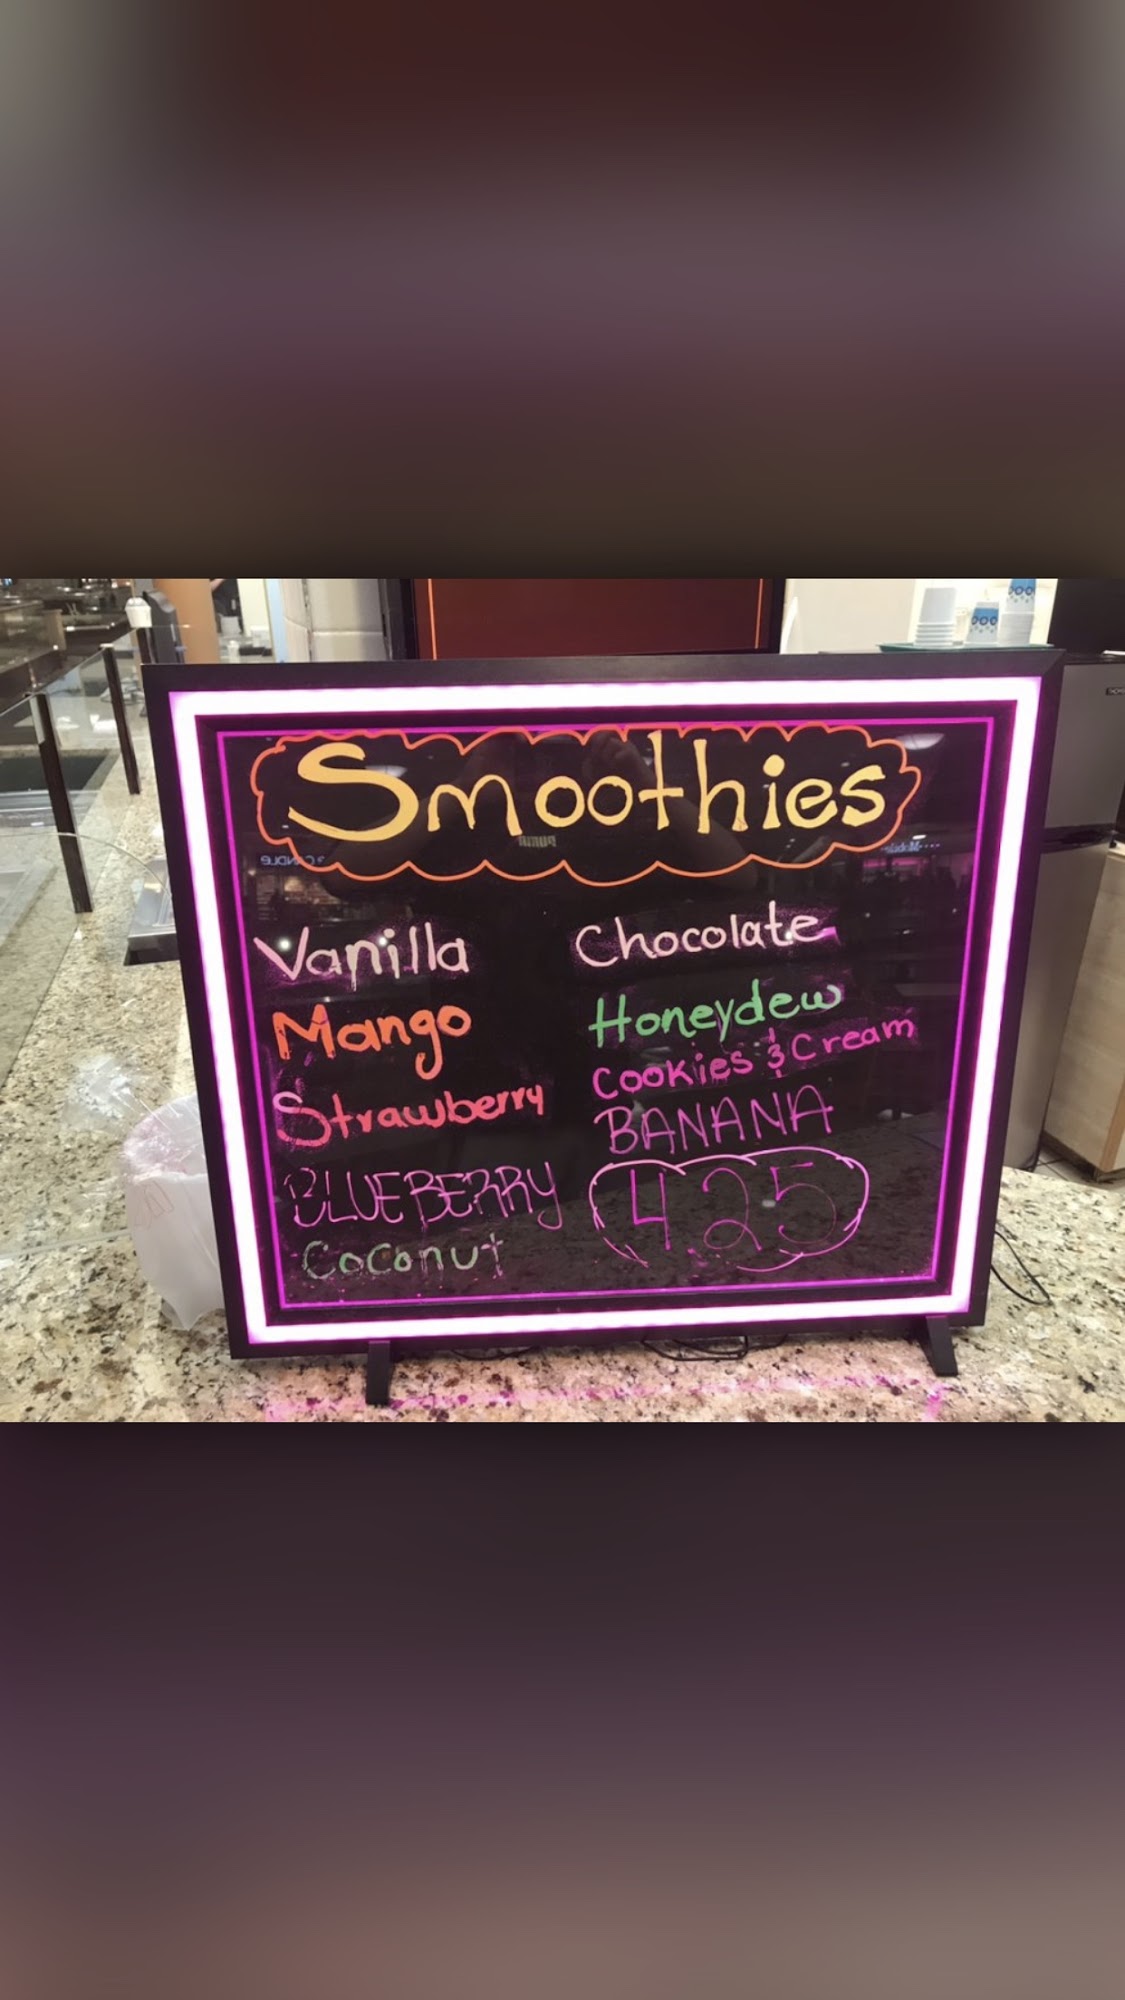 Smoothies
Vanilla
Mango
Strawberry
BLUEBERRY
Coconut
Chocolate
Honeydew
Cookies & Cream
BANANA
425